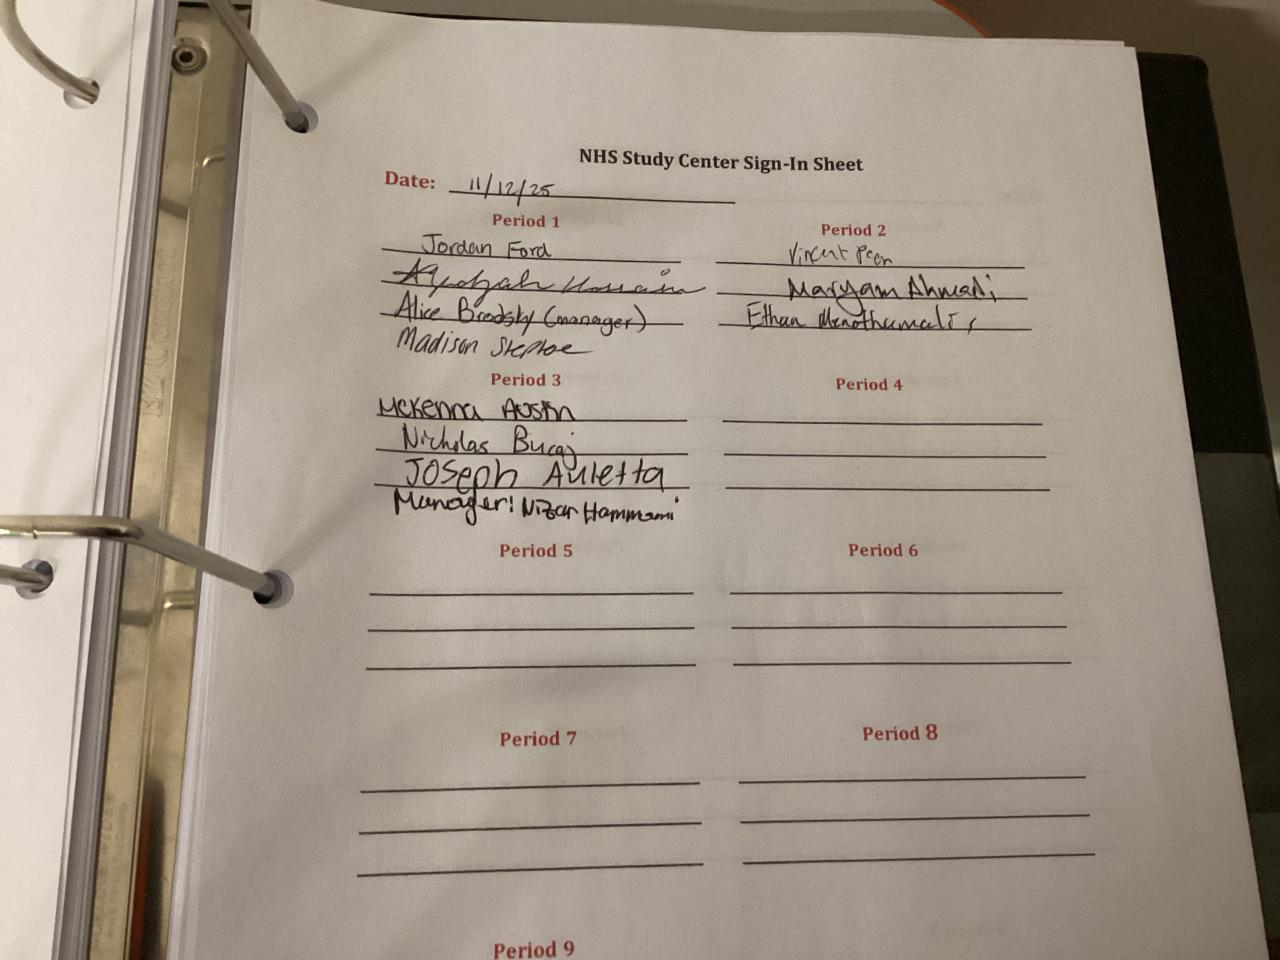 NHS Study Center Sign-In Sheet
Date: 11/12/25
Period 1
Jordan Ford
Hossain
Alice Brodsky (manager)
Madison Steptoe
Period 2
Vincent
Maryam Ahmadi
Ethan
Period 3
McKenna Austin
Nicholas Bucaj
Joseph Auletta
Manager: Nizar Hammami
Period 4
Period 5
Period 6
Period 7
Period 8
Period 9